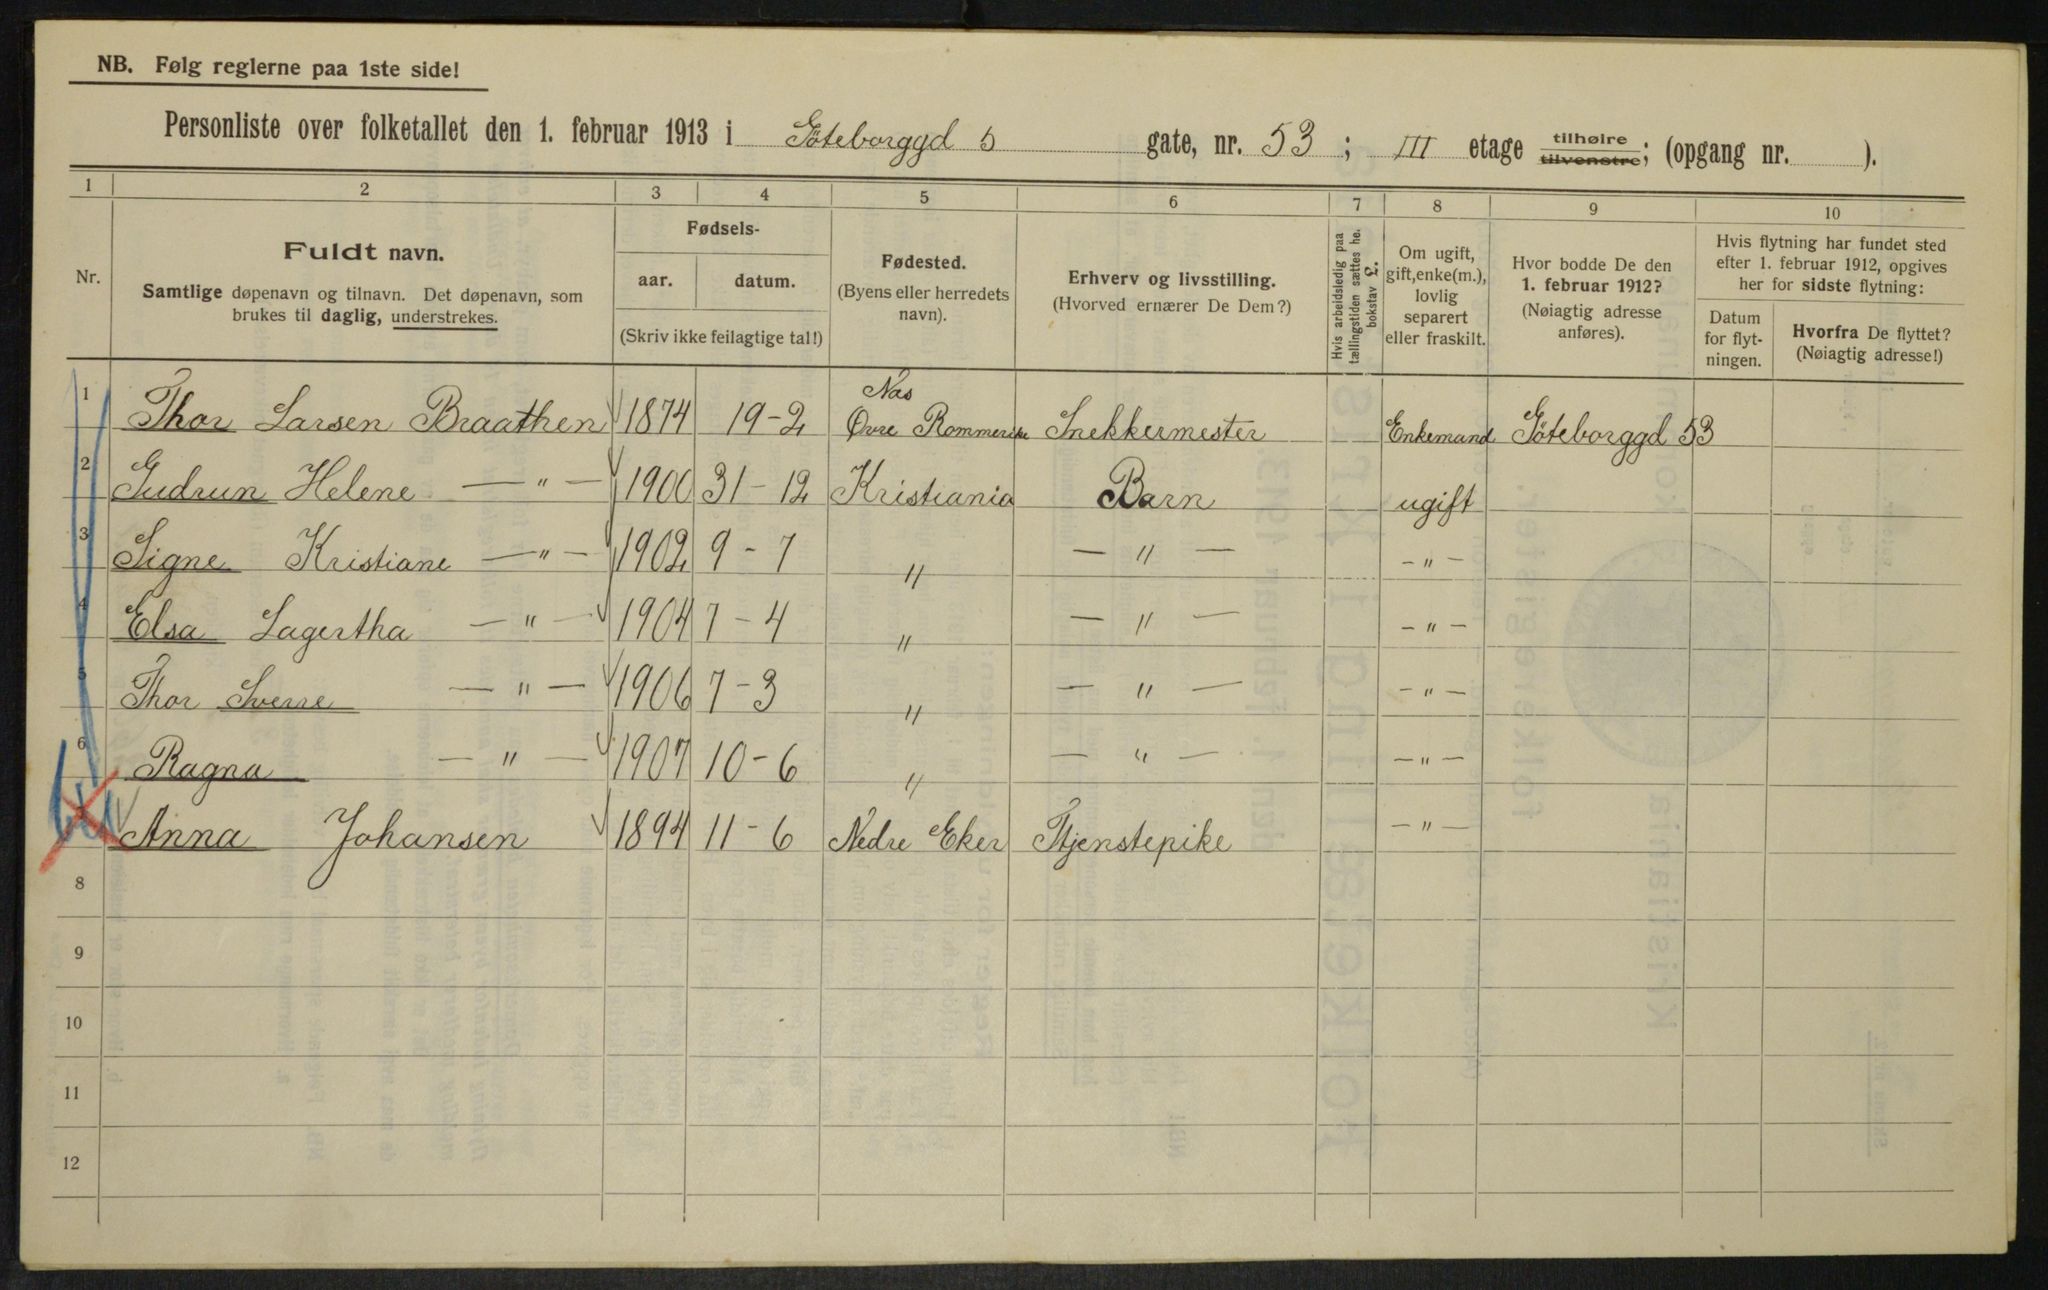 NB. Følg reglerne paa 1ste side!
Personliste over folketallet den 1. februar 1913 i Göteborggd 5 gate, nr. 53; III etage tilhøire tilvenstre; (opgang nr. ).
1 2 3 4 5 6 7 8 9 10
Nr.
Fuldt navn.
Samtlige døpenavn og tilnavn. Det døpenavn, som
brukes til daglig, understrekes.
Fødsels-
aar. datum.
(Skriv ikke feilagtige tal!)
Fødested.
(Byens eller herredets
navn).
Erhverv og livsstilling.
(Hvorved ernærer De Dem?)
Hvis arbeidsledig paa
tællingstiden sættes he.
bokstav L.
Om ugift,
gift, enke(m.),
lovlig
separert
eller fraskilt.
Hvor bodde De den
1. februar 1912?
(Nøiagtig adresse
anføres).
Hvis flytning har fundet sted
efter 1. februar 1912, opgives
her for sidste flytning:
Datum
for flyt-
ningen.
Hvorfra De flyttet?
(Nøiagtig adresse!)
Nas
1 Thor Larsen Braathen 1874 19-2 Øvre Rommerike Snekkermester Enkemand Göteborggd 53
2 Gudrun Helene — " — 1900 31-12 Kristiania Barn ugift
3 Signe Kristiane — " — 1902 9-7 " — " — - " -
4 Elsa Lagertha — " — 1904 7-4 " — " — - " -
5 Thor Sverre — " — 1906 7-3 " — " — - " -
6 Ragna — " — 1907 10-6 " — " — - " -
Anna Johansen 1894 11-6 Nedre Eker Tjenstepike - " -
8
9
10
11
12